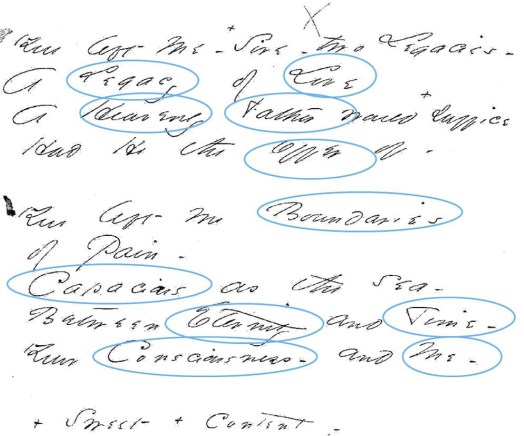 You left me - Sire - two Legacies -
A Legacy of Love
A Heavenly Father would suffice
Had He the Offer of -
You left me Boundaries
of Pain -
Capacious as the Sea -
Between Eternity and Time -
Your Consciousness - and me -
+ Sweet + Content -